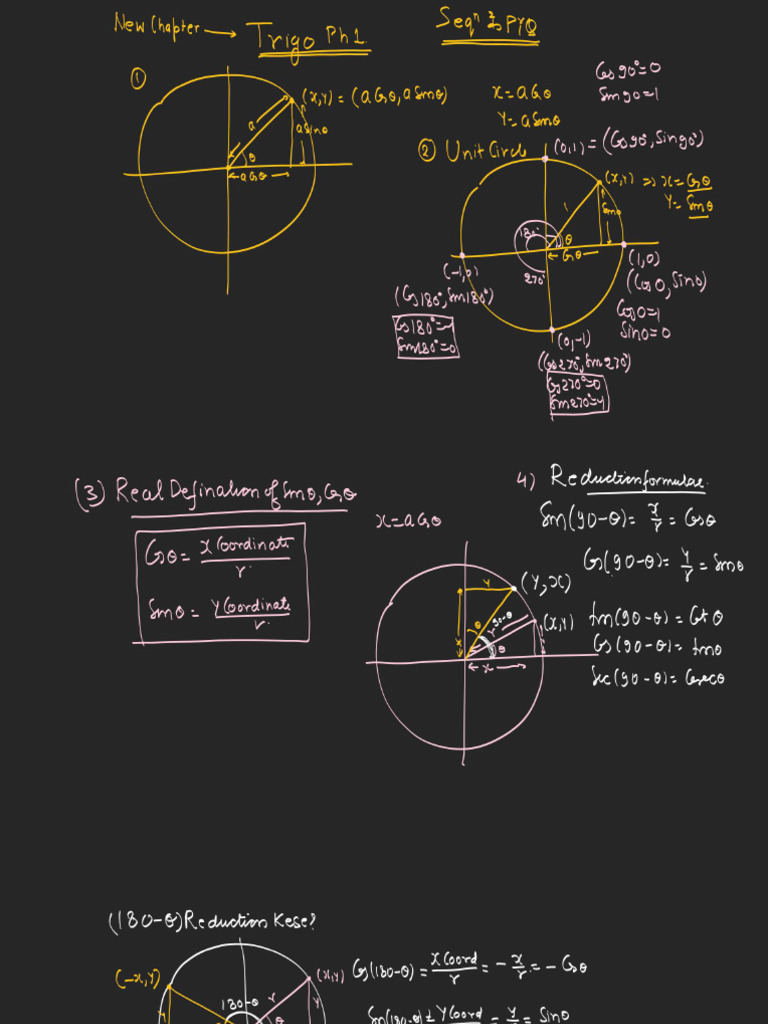 New Chapter → Trigo Ph 1.
Seqⁿ & PYQ
①
(x,y) = (a Cosθ, a Sinθ)
a
a sinθ
θ
a Cosθ
x = a Cosθ
y = a Sinθ
Cos 90° = 0
Sin 90 = 1
② Unit Circle
(0,1) = (Cos 90°, Sin 90°)
(x,y) ⇒ x = Cosθ
y = Sinθ
1
Sinθ
θ
Cosθ
180°
270°
(-1,0)
(Cos 180°, Sin 180°)
Cos 180° = -1
Sin 180° = 0
(1,0)
(Cos 0, Sin 0)
Cos 0 = 1
Sin 0 = 0
(0,-1)
(Cos 270°, Sin 270°)
Cos 270° = 0
Sin 270° = -1
(3) Real Defination of Sinθ, Cosθ
Cosθ = x Coordinate / r.
Sinθ = y Coordinate / r.
x = a Cosθ
4) Reduction formulae.
Sin(90-θ) = x/r = Cosθ
Cos(90-θ) = y/r = Sinθ
tan(90-θ) = Cot θ
Cot(90-θ) = tanθ
Sec(90-θ) = Cosecθ
y
(y,x)
x
θ
r
90-θ
(x,y)
θ
x
(180-θ) Reduction Kese?
(-x,y)
(x,y)
180-θ
r
y
θ
y
Cos(180-θ) = x Coord / r = - x/r = - Cosθ
Sin(180-θ) = y Coord / r = y/r = Sinθ